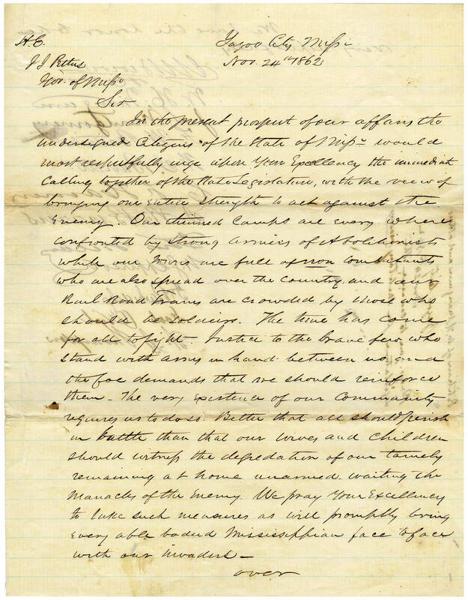 H. E.
J J Pettus
Gov. of Missi
Yazoo City Missi
Nov. 24th 1862
Sir
In the present prospect of our affairs the
undersigned Citizens of the State of Missi would
most respectfully urge upon Your Excellency the immediate
calling together of the State Legislature, with the view of
bringing our entire strength to act against the
Enemy. Our thinned Camps are every where
confronted by strong armies of Abolitionists
while our towns are full of non combatants
who are also spread over the Country and our
Rail Road Trains are crowded by those who
should be soldiers. The time has come
for all to fight. Justice to the brave few who
stand with arms in hand between us and
the foe demands that we should reinforce
them. The very existence of our Community
requires us to do so. Better that all should perish
in battle than that our wives and children
should witness the degredation of our tamely
remaining at home unarmed waiting the
Manacles of the enemy. We pray Your Excellency
to take such measures as will promptly bring
every able bodied Mississippian face to face
with our invaders—
over